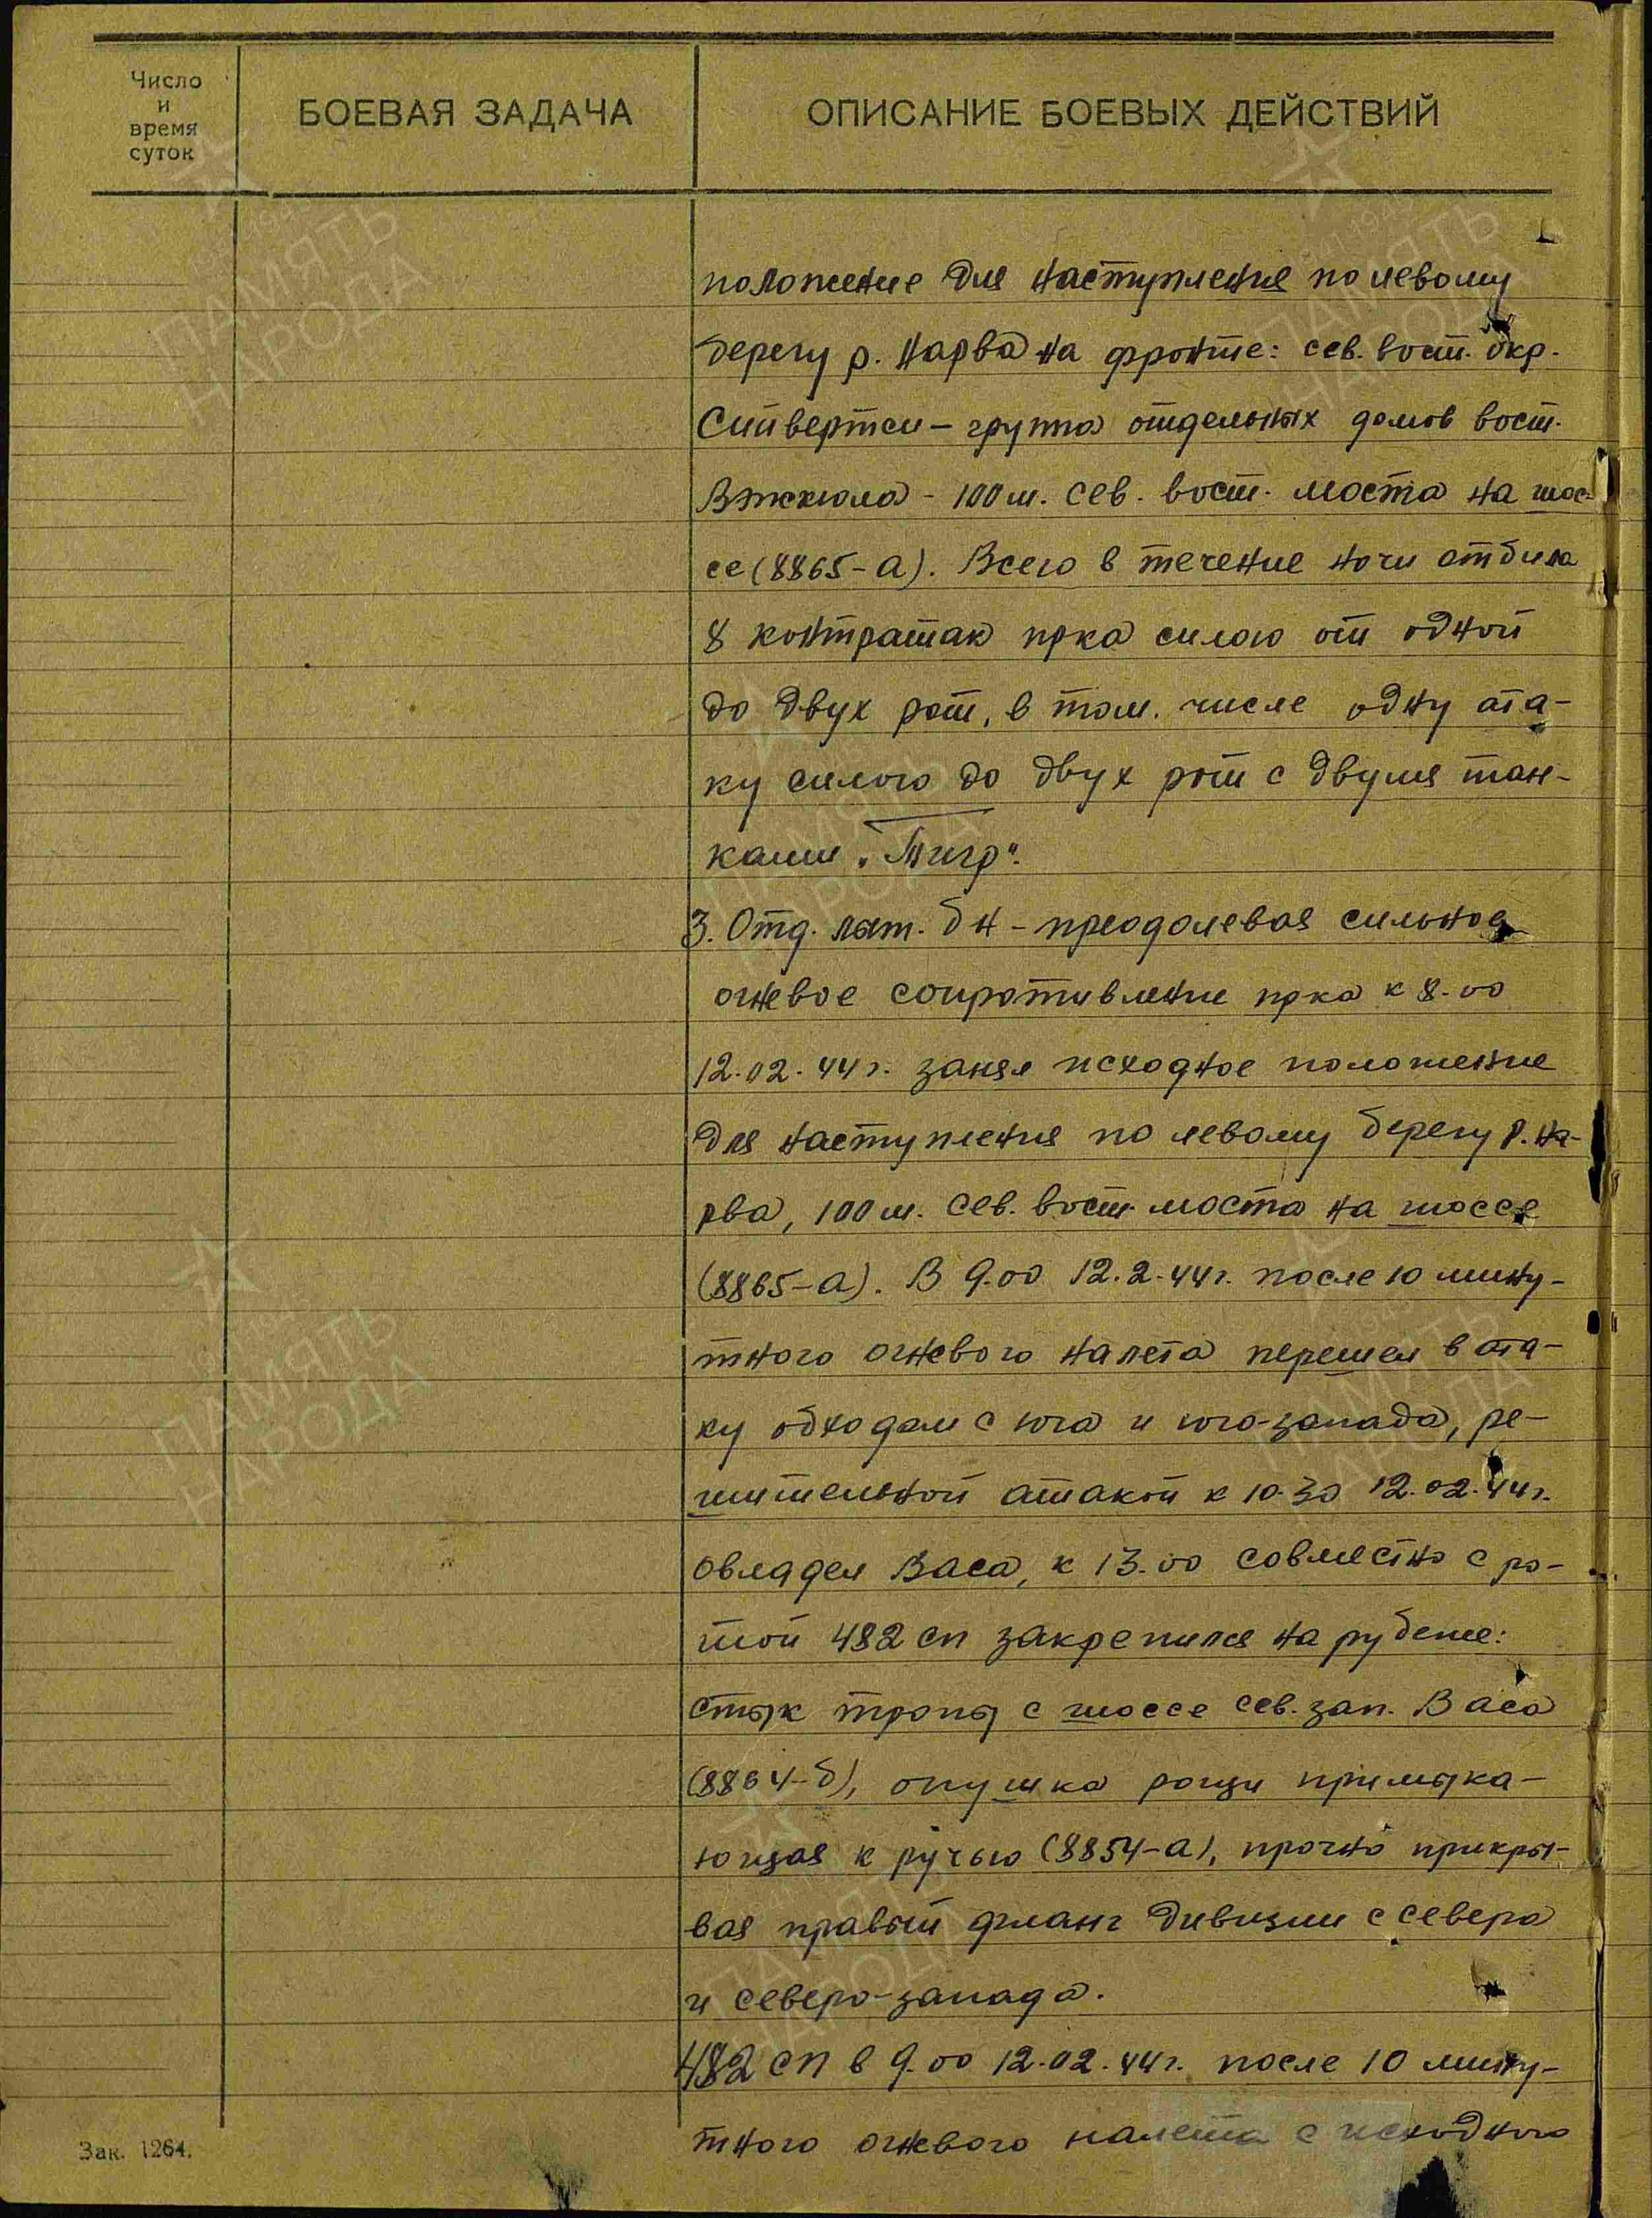 Число
и
время
суток
БОЕВАЯ ЗАДАЧА
ОПИСАНИЕ БОЕВЫХ ДЕЙСТВИЙ
положение для наступления по левому
берегу р. Нарва на фронте: сев. вост. окр.
Сийвертси – группа отдельных домов вост.
Вэжкюла – 100 м. сев. вост. моста на шос-
се (8865-а). Всего в течение ночи отбила
8 контратак пр-ка силою от одной
до двух рот, в том. числе одну ата-
ку силою до двух рот с двумя тан-
ками „Тигр".
3. Отд. лыт. бн – преодолевая сильное
огневое сопротивление пр-ка к 8.00
12.02.44 г. занял исходное положение
для наступления по левому берегу р. На-
рва, 100 м. сев. вост. моста на шоссе
(8865-а). В 9.00 12.2.44 г. после 10 мину-
тного огневого налета перешел в ата-
ку обходом с юга и юго-запада, ре-
шительной атакой к 10.30 12.02.44 г.
овладел Васа, к 13.00 совместно с ро-
той 482 сп закрепился на рубеже:
стык тропы с шоссе сев. зап. Васа
(8864-б), опушка рощи примыка-
ющая к ручью (8854-а), прочно прикры-
вая правый фланг дивизии с севера
и северо-запада.
482 сп в 9.00 12.02.44 г. после 10 мину-
тного огневого налета с исходного
Зак. 1264.
ПАМЯТЬ
НАРОДА